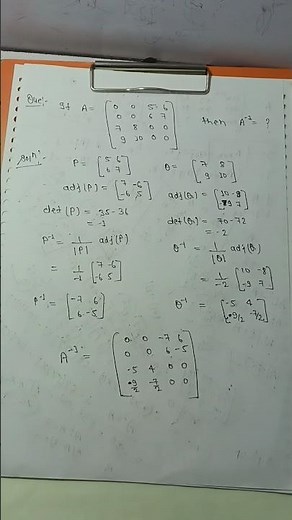 Que:- If A = [0 0 5 6
0 0 6 7
7 8 0 0
9 10 0 0] then A⁻¹ = ?
Solⁿ:- P = [5 6
6 7] Q = [7 8
9 10]
adj(P) = [7 -6
-6 5] adj(Q) = [10 -8
-9 7]
det(P) = 35-36
= -1
det(Q) = 70-72
= -2
P⁻¹ = 1/|P| adj(P)
Q⁻¹ = 1/|Q| adj(Q)
= 1/-1 [7 -6
-6 5]
= 1/-2 [10 -8
-9 7]
P⁻¹ = [-7 6
6 -5]
Q⁻¹ = [-5 4
9/2 -7/2]
A⁻¹ = [0 0 -7 6
0 0 6 -5
-5 4 0 0
9/2 -7/2 0 0]